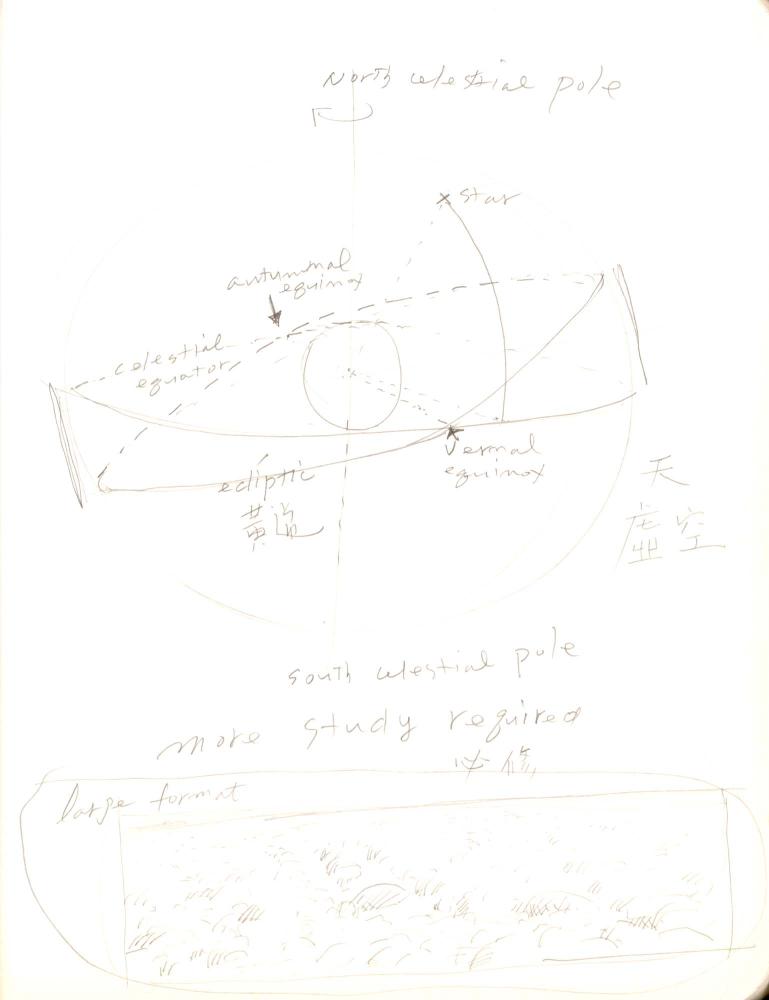 North celestial pole
star
autumnal
equinox
celestial
equator
Vernal
equinox
ecliptic
黄道
天
虚空
south celestial pole
more study required
必修
large format